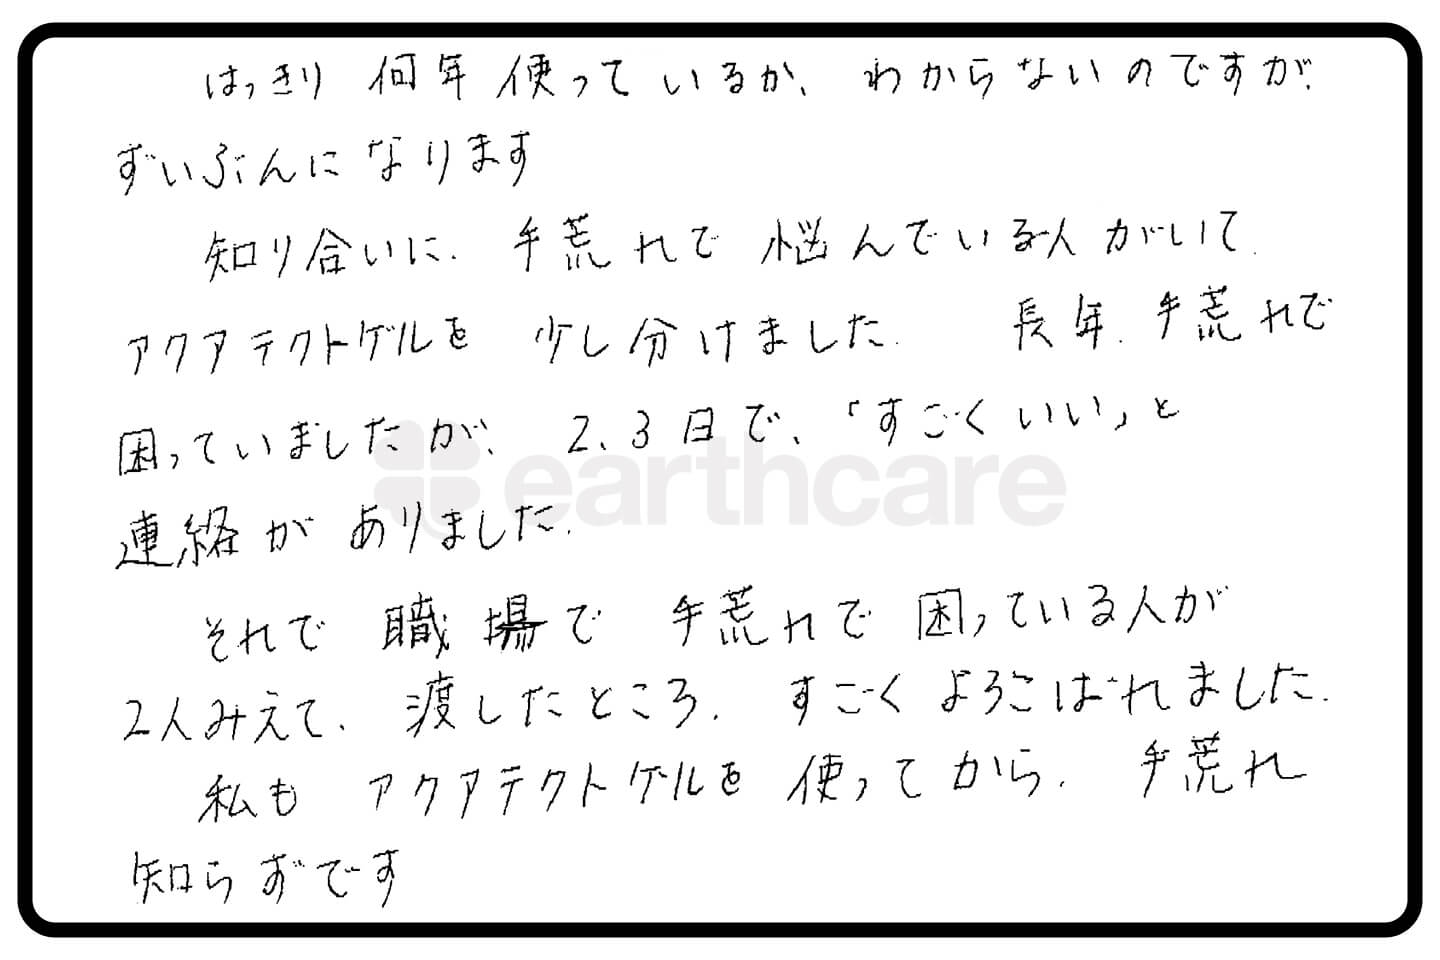 はっきり何年使っているか、わからないのですが、
ずいぶんになります
知り合いに、手荒れで悩んでいる人がいて
アクアテクトゲルを少し分けました。長年、手荒れで
困っていましたが、2、3日で、「すごくいい」と
earthcare
連絡がありました。
それで職場で手荒れで困っている人が
2人みえて、渡したところ、すごくよろこばれました。
私もアクアテクトゲルを使ってから、手荒れ
知らずです